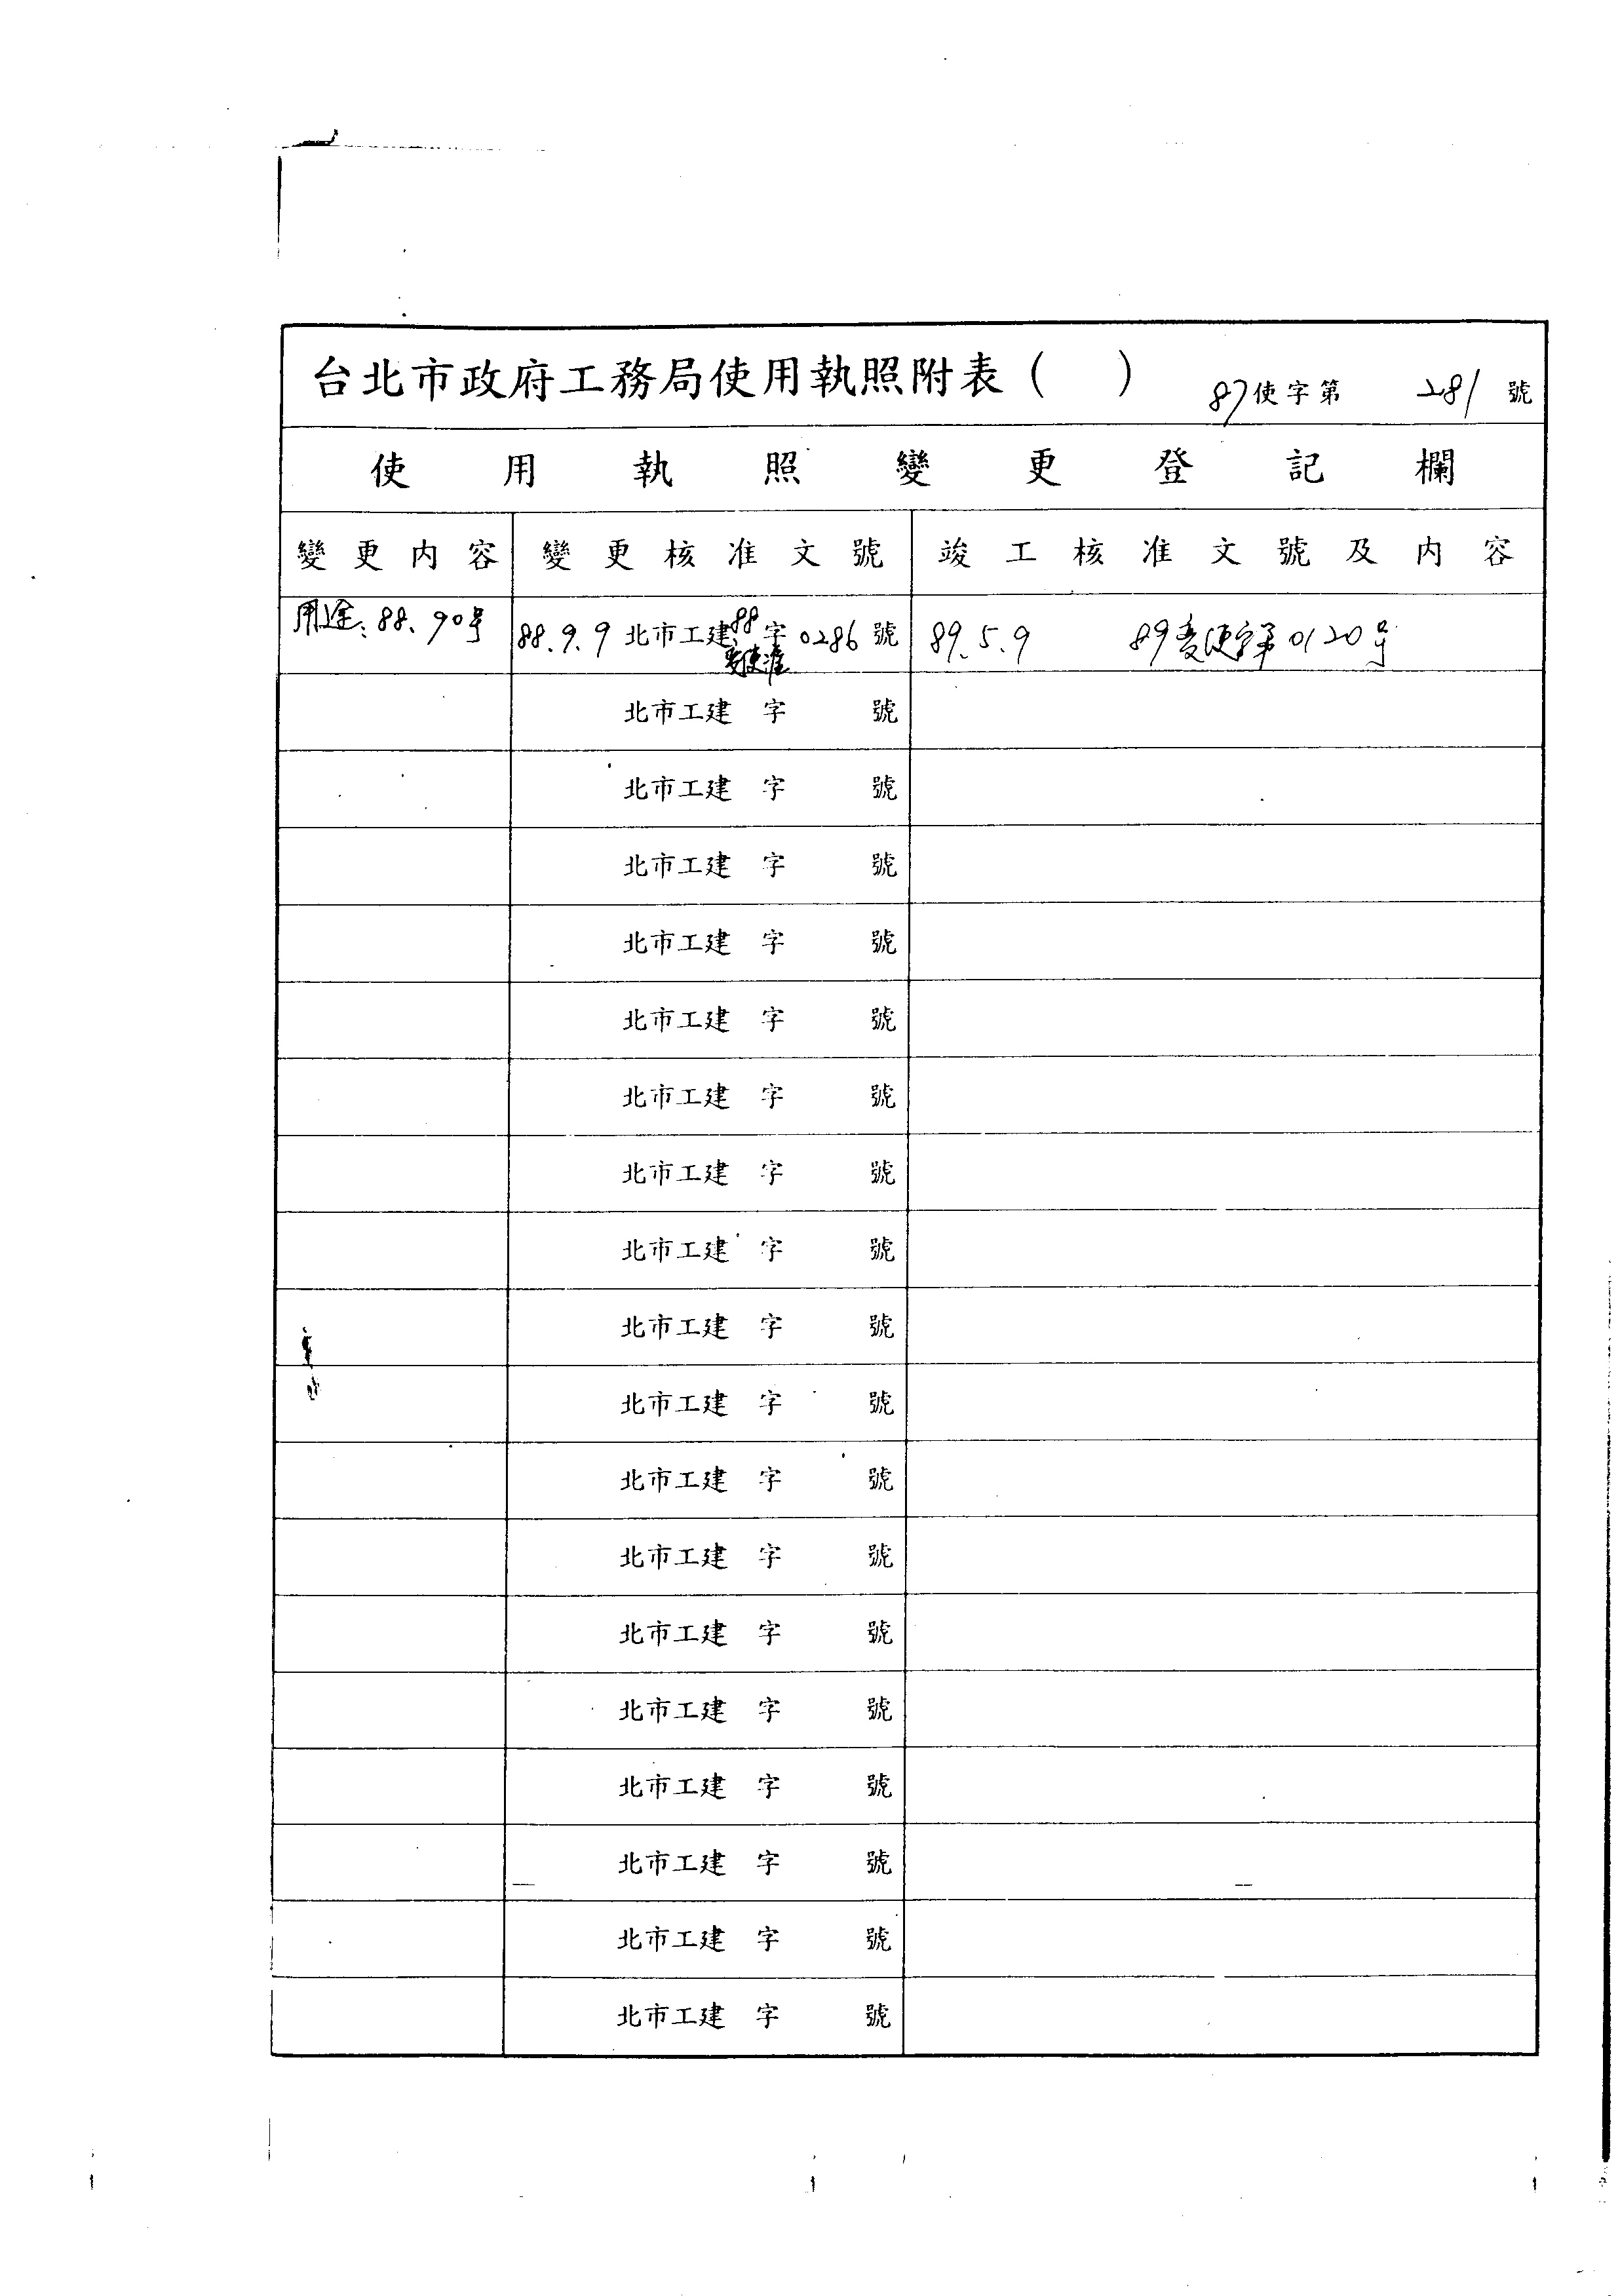 台北市政府工務局使用執照附表（　） 87使字第 281 號
使用執照變更登記欄
變更內容 變更核准文號 竣工核准文號及內容
用途:88、90号 88.9.9 北市工建88變使准字0286號 89.5.9 89變使字第0120号
北市工建 字 號
北市工建 字 號
北市工建 字 號
北市工建 字 號
北市工建 字 號
北市工建 字 號
北市工建 字 號
北市工建 字 號
北市工建 字 號
北市工建 字 號
北市工建 字 號
北市工建 字 號
北市工建 字 號
北市工建 字 號
北市工建 字 號
北市工建 字 號
北市工建 字 號
北市工建 字 號